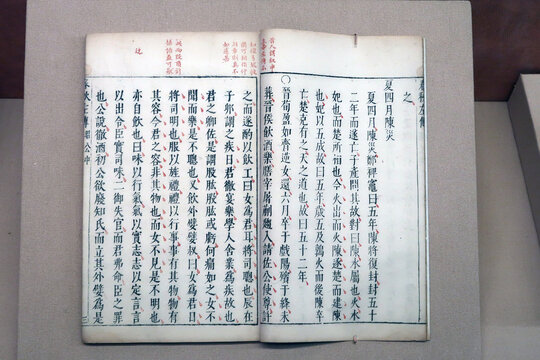 之
夏四月陳災
夏四月陳災鄭裨竈曰五年陳將復封封五十
二年而遂亡子產問其故對曰陳水屬也火水
妃也而楚所相也今火出而火陳逐楚而建陳
也妃以五成故曰五年歲五及鶉火而後陳卒
亡楚克有之天之道也故曰五十二年
○晉荀盈如齊逆女還六月卒于戲陽殯于絳未
葬晉侯飲酒樂膳宰屠蒯趨入請佐公使尊許
之而遂酌以飲工曰女為君耳將司聰也辰在
子卯謂之疾日君徹宴樂學人舍業為疾故也
君之卿佐是謂股肱股肱或虧何痛如之女不
聞而樂是不聰也又飲外嬖嬖叔曰女為君目
將司明也服以旌禮禮以行事事有其物物有
其容今君之容非其物也而女不見是不明也
亦自飲也曰味以行氣氣以實志志以定言言
以出令臣實司味二御失官而君弗命臣之罪
也公說徹酒初公欲廢知氏而立其外嬖為是
春秋左傳 昭公中 三